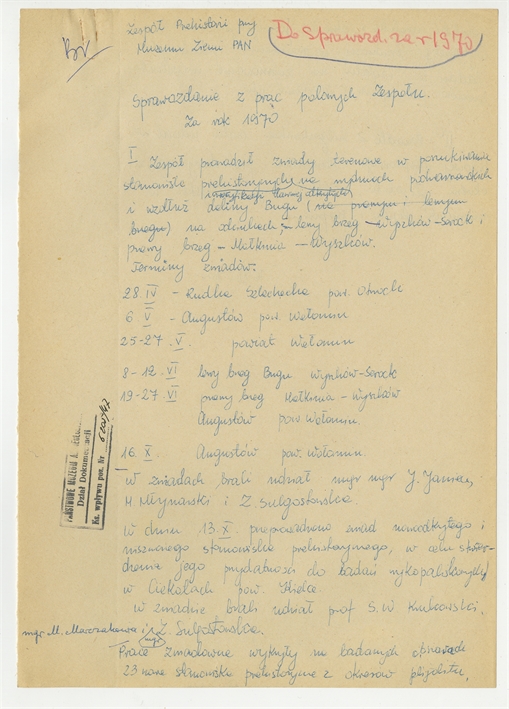 Zespół Prehistorii przy
Muzeum Ziemi PAN
Do Sprawozd. za r 1970
Sprawozdanie z prac polowych Zespołu.
Za rok 1970
I Zespół prowadził zwiady terenowe w poszukiwaniu
stanowisk prehistorycznych na wydmach podwarszawskich
i wzdłuż doliny Bugu (na prawym i lewym
brzegu) na odcinkach; – lewy brzeg – Wyszków–Serock i
prawy brzeg – Małkinia – Wyszków.
Terminy zwiadów.
28.IV – Rudka Szlachecka pow. Otwock
6.V – Augustów pow. Wołomin
25-27.V. powiat Wołomin
8-12.VI lewy brzeg Bugu Wyszków–Serock
19-27.VI prawy brzeg Małkinia – Wyszków
Augustów pow. Wołomin.
16.X. Augustów pow. Wołomin.
W zwiadach brali udział mgr mgr J.
H. Młynarski i Z. Sulgostowska
W dniu 13.X. przeprowadzono zwiad nowoodkrytego i
niszczonego stanowiska prehistorycznego, w celu stwier-
dzenia jego przydatności do badań wykopaliskowych
w Ciekotach pow. Kielce.
w zwiadzie brali udział prof S. W. Krukowski,
mgr. M. i mgr Z. Sulgostowska.
Prace zwiadowcze wykryły na badanych obszarach
23 nowe stanowiska prehistoryczne z okresów
PAŃSTWOWE MUZEUM
Dział Dokumentacji
Ks. wpływu poz. Nr